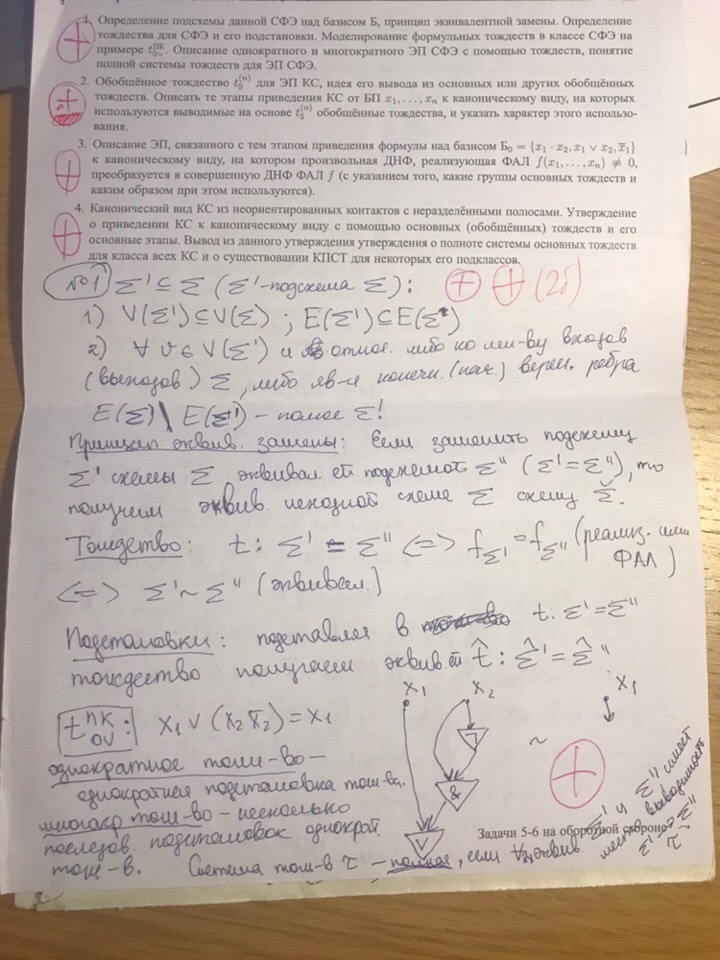 1. Определение подсхемы данной СФЭ над базисом Б, принцип эквивалентной замены. Определение
тождества для СФЭ и его подстановки. Моделирование формульных тождеств в классе СФЭ на
примере t₀ᵥᴾᴷ. Описание однократного и многократного ЭП СФЭ с помощью тождеств, понятие
полной системы тождеств для ЭП СФЭ.
2. Обобщённое тождество t₅⁽ⁿ⁾ для ЭП КС, идея его вывода из основных или других обобщённых
тождеств. Описать те этапы приведения КС от БП x₁, . . . , xₙ к каноническому виду, на которых
используются выводимые на основе t₅⁽ⁿ⁾ обобщённые тождества, и указать характер этого использо-
вания.
3. Описание ЭП, связанного с тем этапом приведения формулы над базисом Б₀ = {x₁ · x₂, x₁ ∨ x₂, x̄₁}
к каноническому виду, на котором произвольная ДНФ, реализующая ФАЛ f(x₁, . . . , xₙ) ≢ 0,
преобразуется в совершенную ДНФ ФАЛ f (с указанием того, какие группы основных тождеств и
каким образом при этом используются).
4. Канонический вид КС из неориентированных контактов с неразделёнными полюсами. Утверждение
о приведении КС к каноническому виду с помощью основных (обобщённых) тождеств и его
основные этапы. Вывод из данного утверждения утверждения о полноте системы основных тождеств
для класса всех КС и о существовании КПСТ для некоторых его подклассов.
№1 Σ' ⊆ Σ (Σ'-подсхема Σ): (2б)
1) V(Σ') ⊆ V(Σ) ; E(Σ') ⊆ E(Σ)
2) ∀ v ∈ V(Σ') и относ. либо ко мн-ву входов
(выходов) Σ, либо яв-я конечн. (нач.) верш. ребра
E(Σ) \ E(Σ') – полюс Σ!
Принцип эквив. замены: Если заменить подсхему
Σ' схемы Σ эквивал. ей подсхемой Σ'' (Σ' = Σ''), то
получим эквив. исходной схеме Σ схему Σ̌.
Тождество: t: Σ' = Σ'' <=> f_Σ' = f_Σ'' (реализ. ими
ФАЛ)
<=> Σ' ~ Σ'' (эквивал.)
Подстановки: подставляя в t: Σ' = Σ''
тождество получаем эквив. ей t̂ : Σ̂' = Σ̂''
x₁ x₂ x₁
t₀ᵥᴾᴷ: x₁ ∨ (x₂ x̄₂) = x₁
¬
~
&
∨
однократное тож-во –
однократная подстановка тож-ва.
многокр тож-во – несколько
последов. подстановок однократ.
тож-в. Система тож-в τ – полная, если ∀ эквив. Σ' и Σ'' имеет
место выводимость
Σ' → Σ''
τ
Задачи 5-6 на оборотной стороне